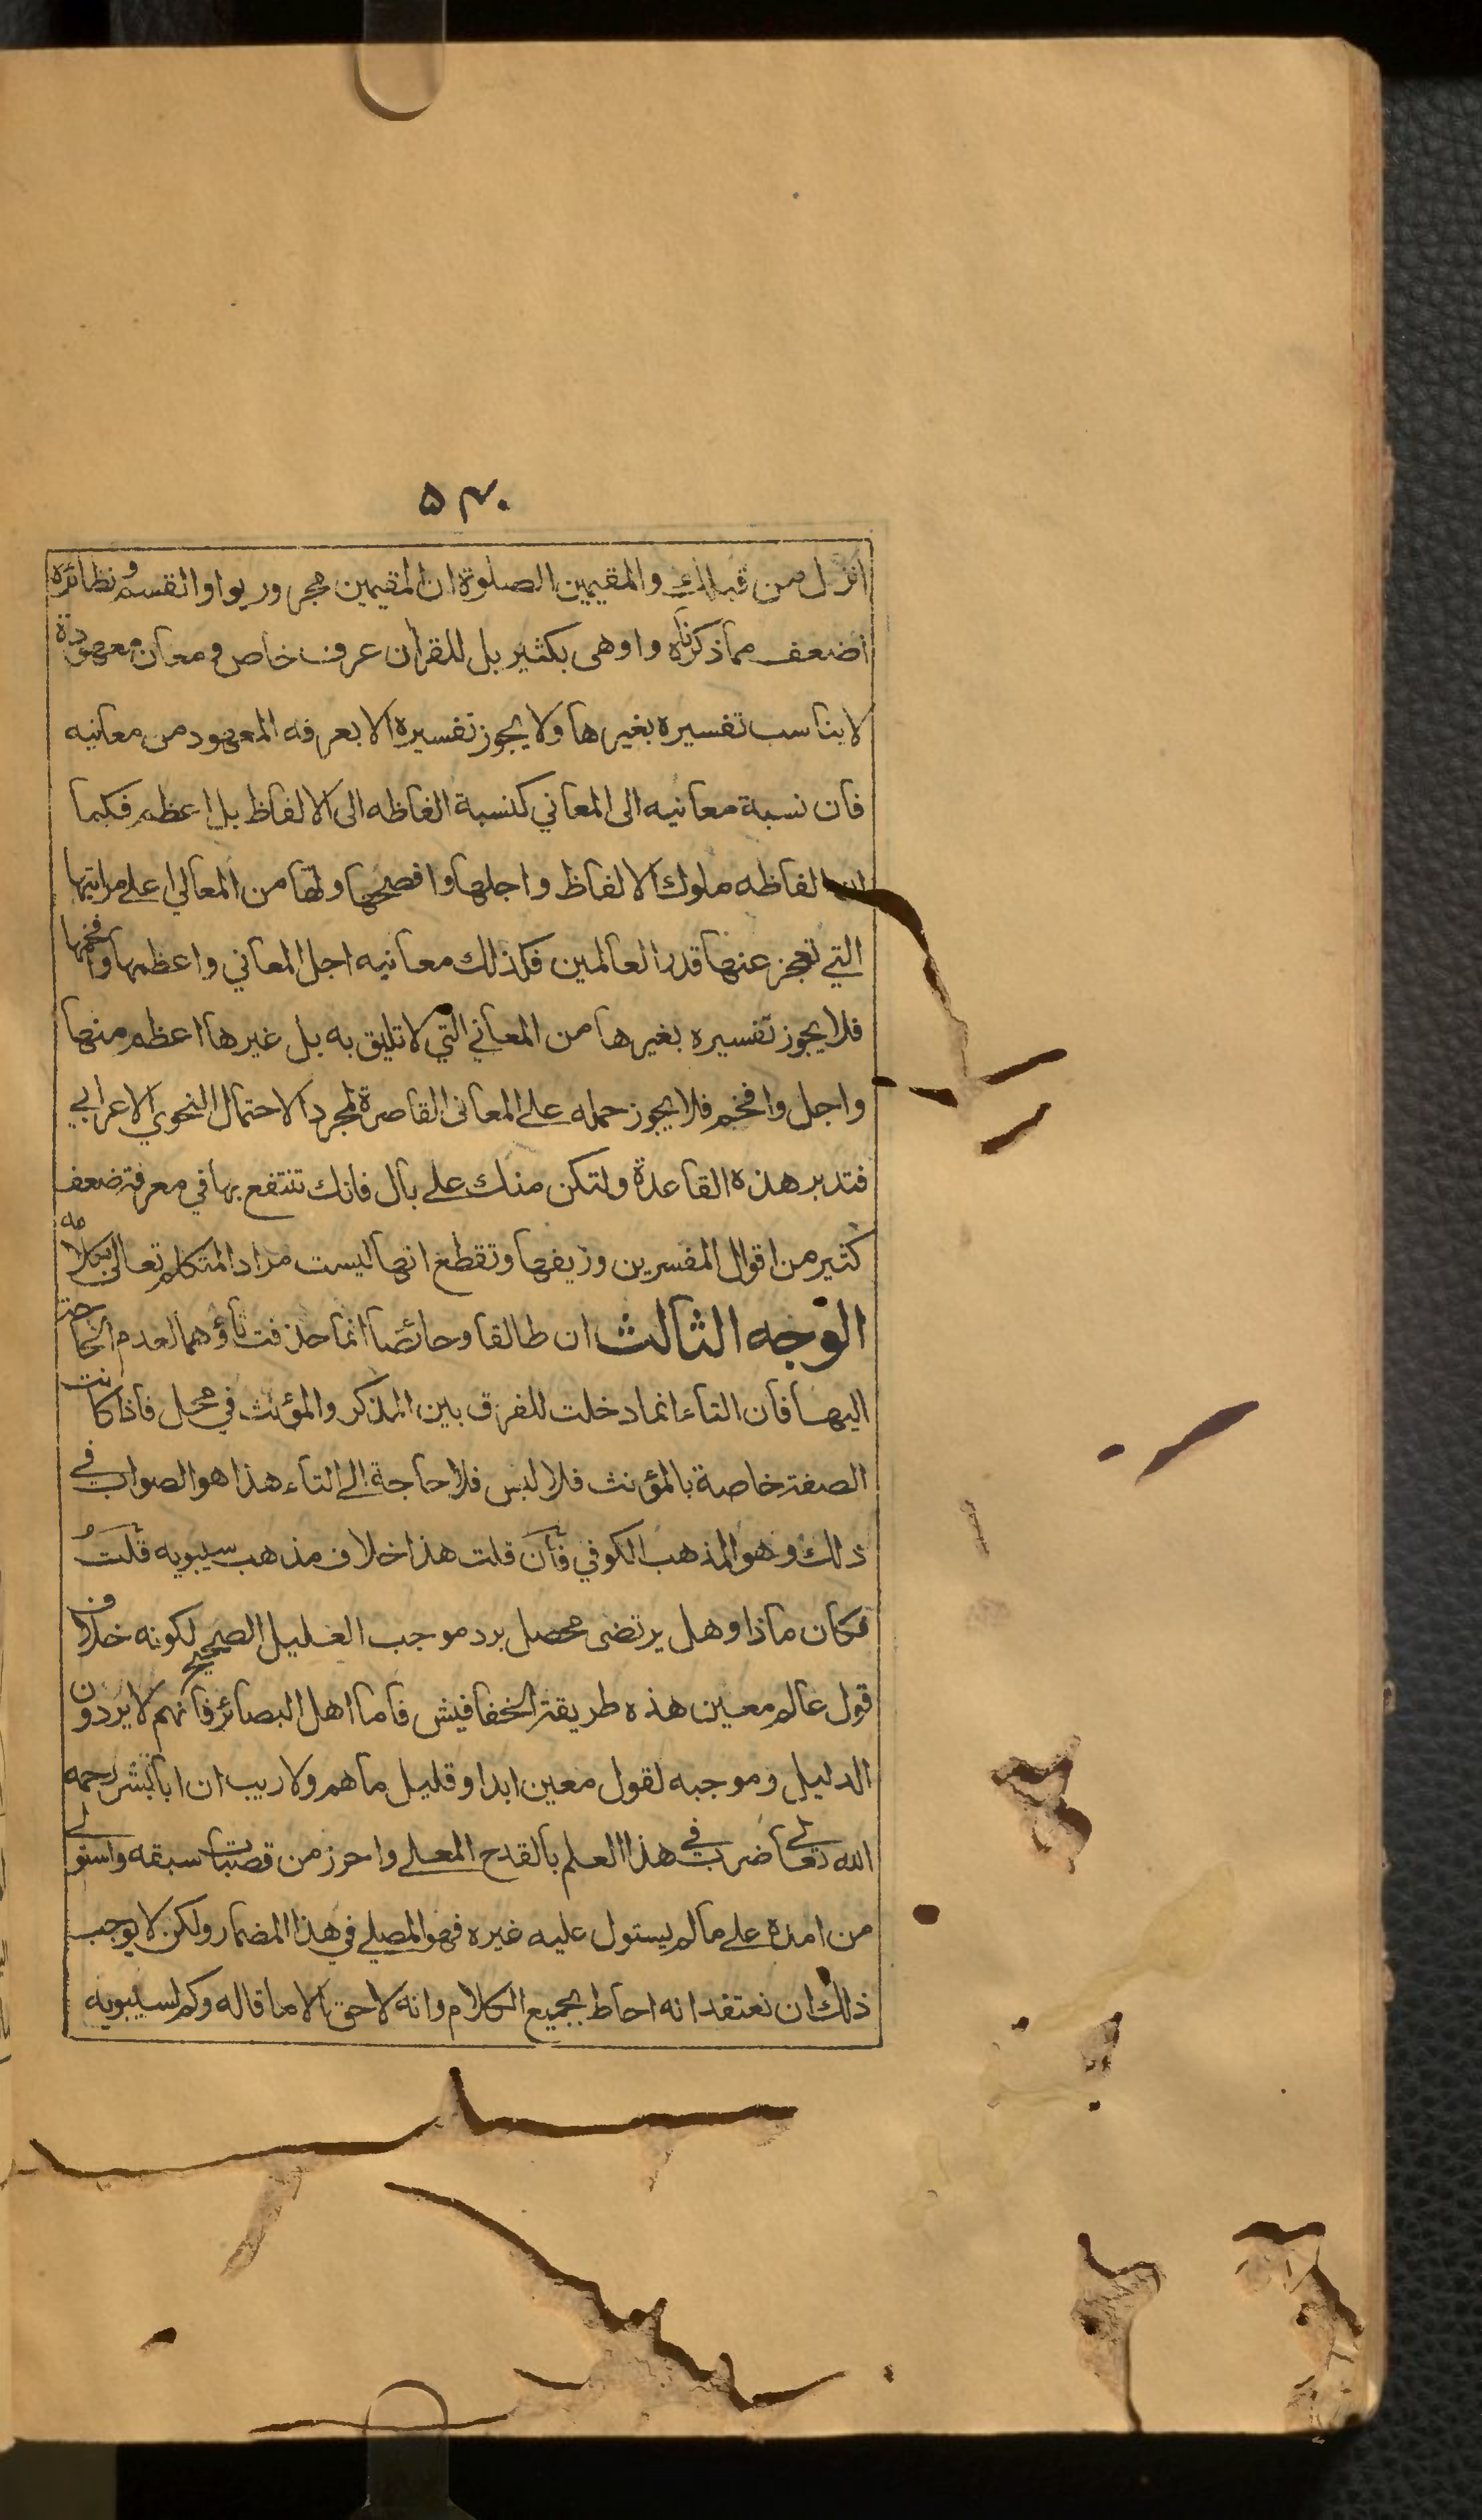 ۵۴۰
انزل من قبلك والمقيمين الصلوة ان المقيمين مجرور بواو القسم ونظائره
اضعف مما ذكرناه واوهى بكثير بل للقرآن عرف خاص ومعان معهودة
لا يناسب تفسيره بغيرها ولا يجوز تفسيره الا بعرفه المعهود من معانيه
فان نسبة معانيه الى المعاني كنسبة الفاظه الى الالفاظ بل اعظم فكما
ان الفاظه ملوك الالفاظ واجلها وافصحها ولها من المعالي اعلے مراتبها
التي تعجز عنها قدر العالمين فكذلك معانيه اجل المعاني واعظمها وافخمها
فلا يجوز تفسيره بغيرها من المعاني التي لا تليق به بل غيرها اعظم منها
واجل وافخم فلا يجوز حمله علے المعانى القاصرة لمجرد الاحتمال النحوي الاعرابي
فتدبر هذه القاعدة ولتكن منك علے بال فانك تنتفع بها في معرفة ضعف
كثير من اقوال المفسرين وزيفها وتقطع انها ليست مراد المتكلم تعالى بكلامه
الوجه الثالث ان طالقا وحائضا انما حذفت تاؤهما لعدم الحاجة
اليها فان التاء انما دخلت للفرق بين المذكر والمؤنث في محل فاذا كانت
الصفة خاصة بالمؤنث فلا لبس فلا حاجة الے التاء هذا هو الصواب في
ذلك وهو المذهب الكوفي فان قلت هذا خلاف مذهب سيبويه قلت
فكان ماذا وهل يرتضى محصل برد موجب الغليل الصحيح لكونه خلاف
قول عالم معين هذه طريقة الخفافيش فاما اهل البصائر فانهم لا يردون
الدليل وموجبه لقول معين ابدا وقليل ما هم ولا ريب ان ابا بشر رحمه
الله تعالے ضرب في هذا العلم بالقدح المعلے واحرز من قصبات سبقه واستولے
من امده علے ما لم يستول عليه غيره فهو المصلے في هذا المضمار ولكن لا يوجب
ذلك ان نعتقد انه احاط بجميع الكلام وانه لا حق الا ما قاله وكم لسيبويه